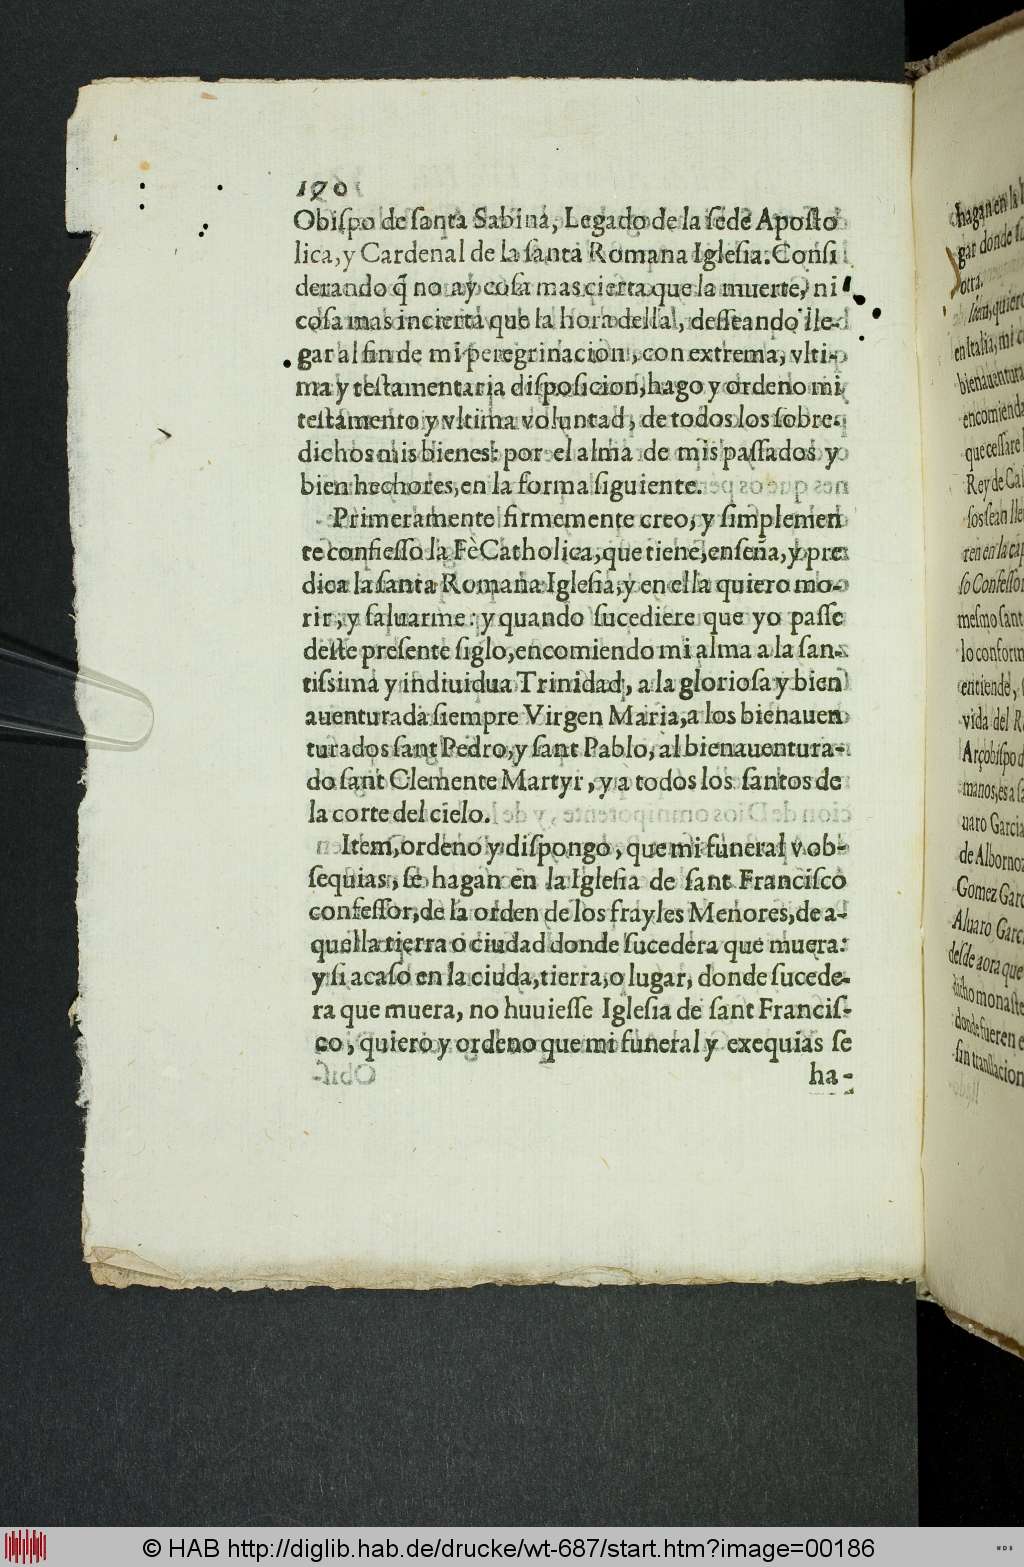 190
Obiſpo de ſanta Sabina, Legado de la ſede Apoſto
lica, y Cardenal de la ſanta Romana Igleſia. Conſi
derando q̃ no ay coſa mas cierta que la muerte, ni
coſa mas incierta que la hora della, deſſeando lle-
gar al fin de mi peregrinacion, con extrema, vlti-
ma y teſtamentaria diſpoſicion, hago y ordeno mi
teſtamento y vltima voluntad, de todos los ſobre-
dichos mis bienes: por el alma de mis paſſados y
bien hechores, en la forma ſiguiente.
Primeramente firmemente creo, y ſimplemen
te confieſſo la Fè Catholica, que tiene, enſeña, y pre
dica la ſanta Romana Igleſia, y en ella quiero mo-
rir, y ſaluarme: y quando ſucediere que yo paſſe
deſte preſente ſiglo, encomiendo mi alma a la ſan-
tiſsima y indiuidua Trinidad, a la glorioſa y bien
auenturada ſiempre Virgen Maria, a los bienauen
turados ſant Pedro, y ſant Pablo, al bienauentura-
do ſant Clemente Martyr, y a todos los ſantos de
la corte del cielo.
Item, ordeno y diſpongo, que mi funeral y ob-
ſequias, ſe hagan en la Igleſia de ſant Franciſco
confeſſor, de la orden de los frayles Menores, de a-
quella tierra o ciudad donde ſucedera que muera:
y ſi acaſo en la ciuda, tierra, o lugar, donde ſucede-
ra que muera, no huuieſſe Igleſia de ſant Franciſ-
co, quiero y ordeno que mi funeral y exequias ſe
ha-
hagan en la
gar donde
otra.
Item, quiero
en Italia, mi
bienauentura
encomienda
que ceſſare
Rey de
ſos ſean
ren en la
ſo Confeſſo
meſmo ſant
lo conform
entiende,
vida del
Arçobiſpo
manos, es a
uaro Garcia
de Albornoz
Gomez Garc
Aluaro Garc
deſde aora que
dicho monaſte
donde fueren
ſin tranſlacion
© HAB http://diglib.hab.de/drucke/wt-687/start.htm?image=00186